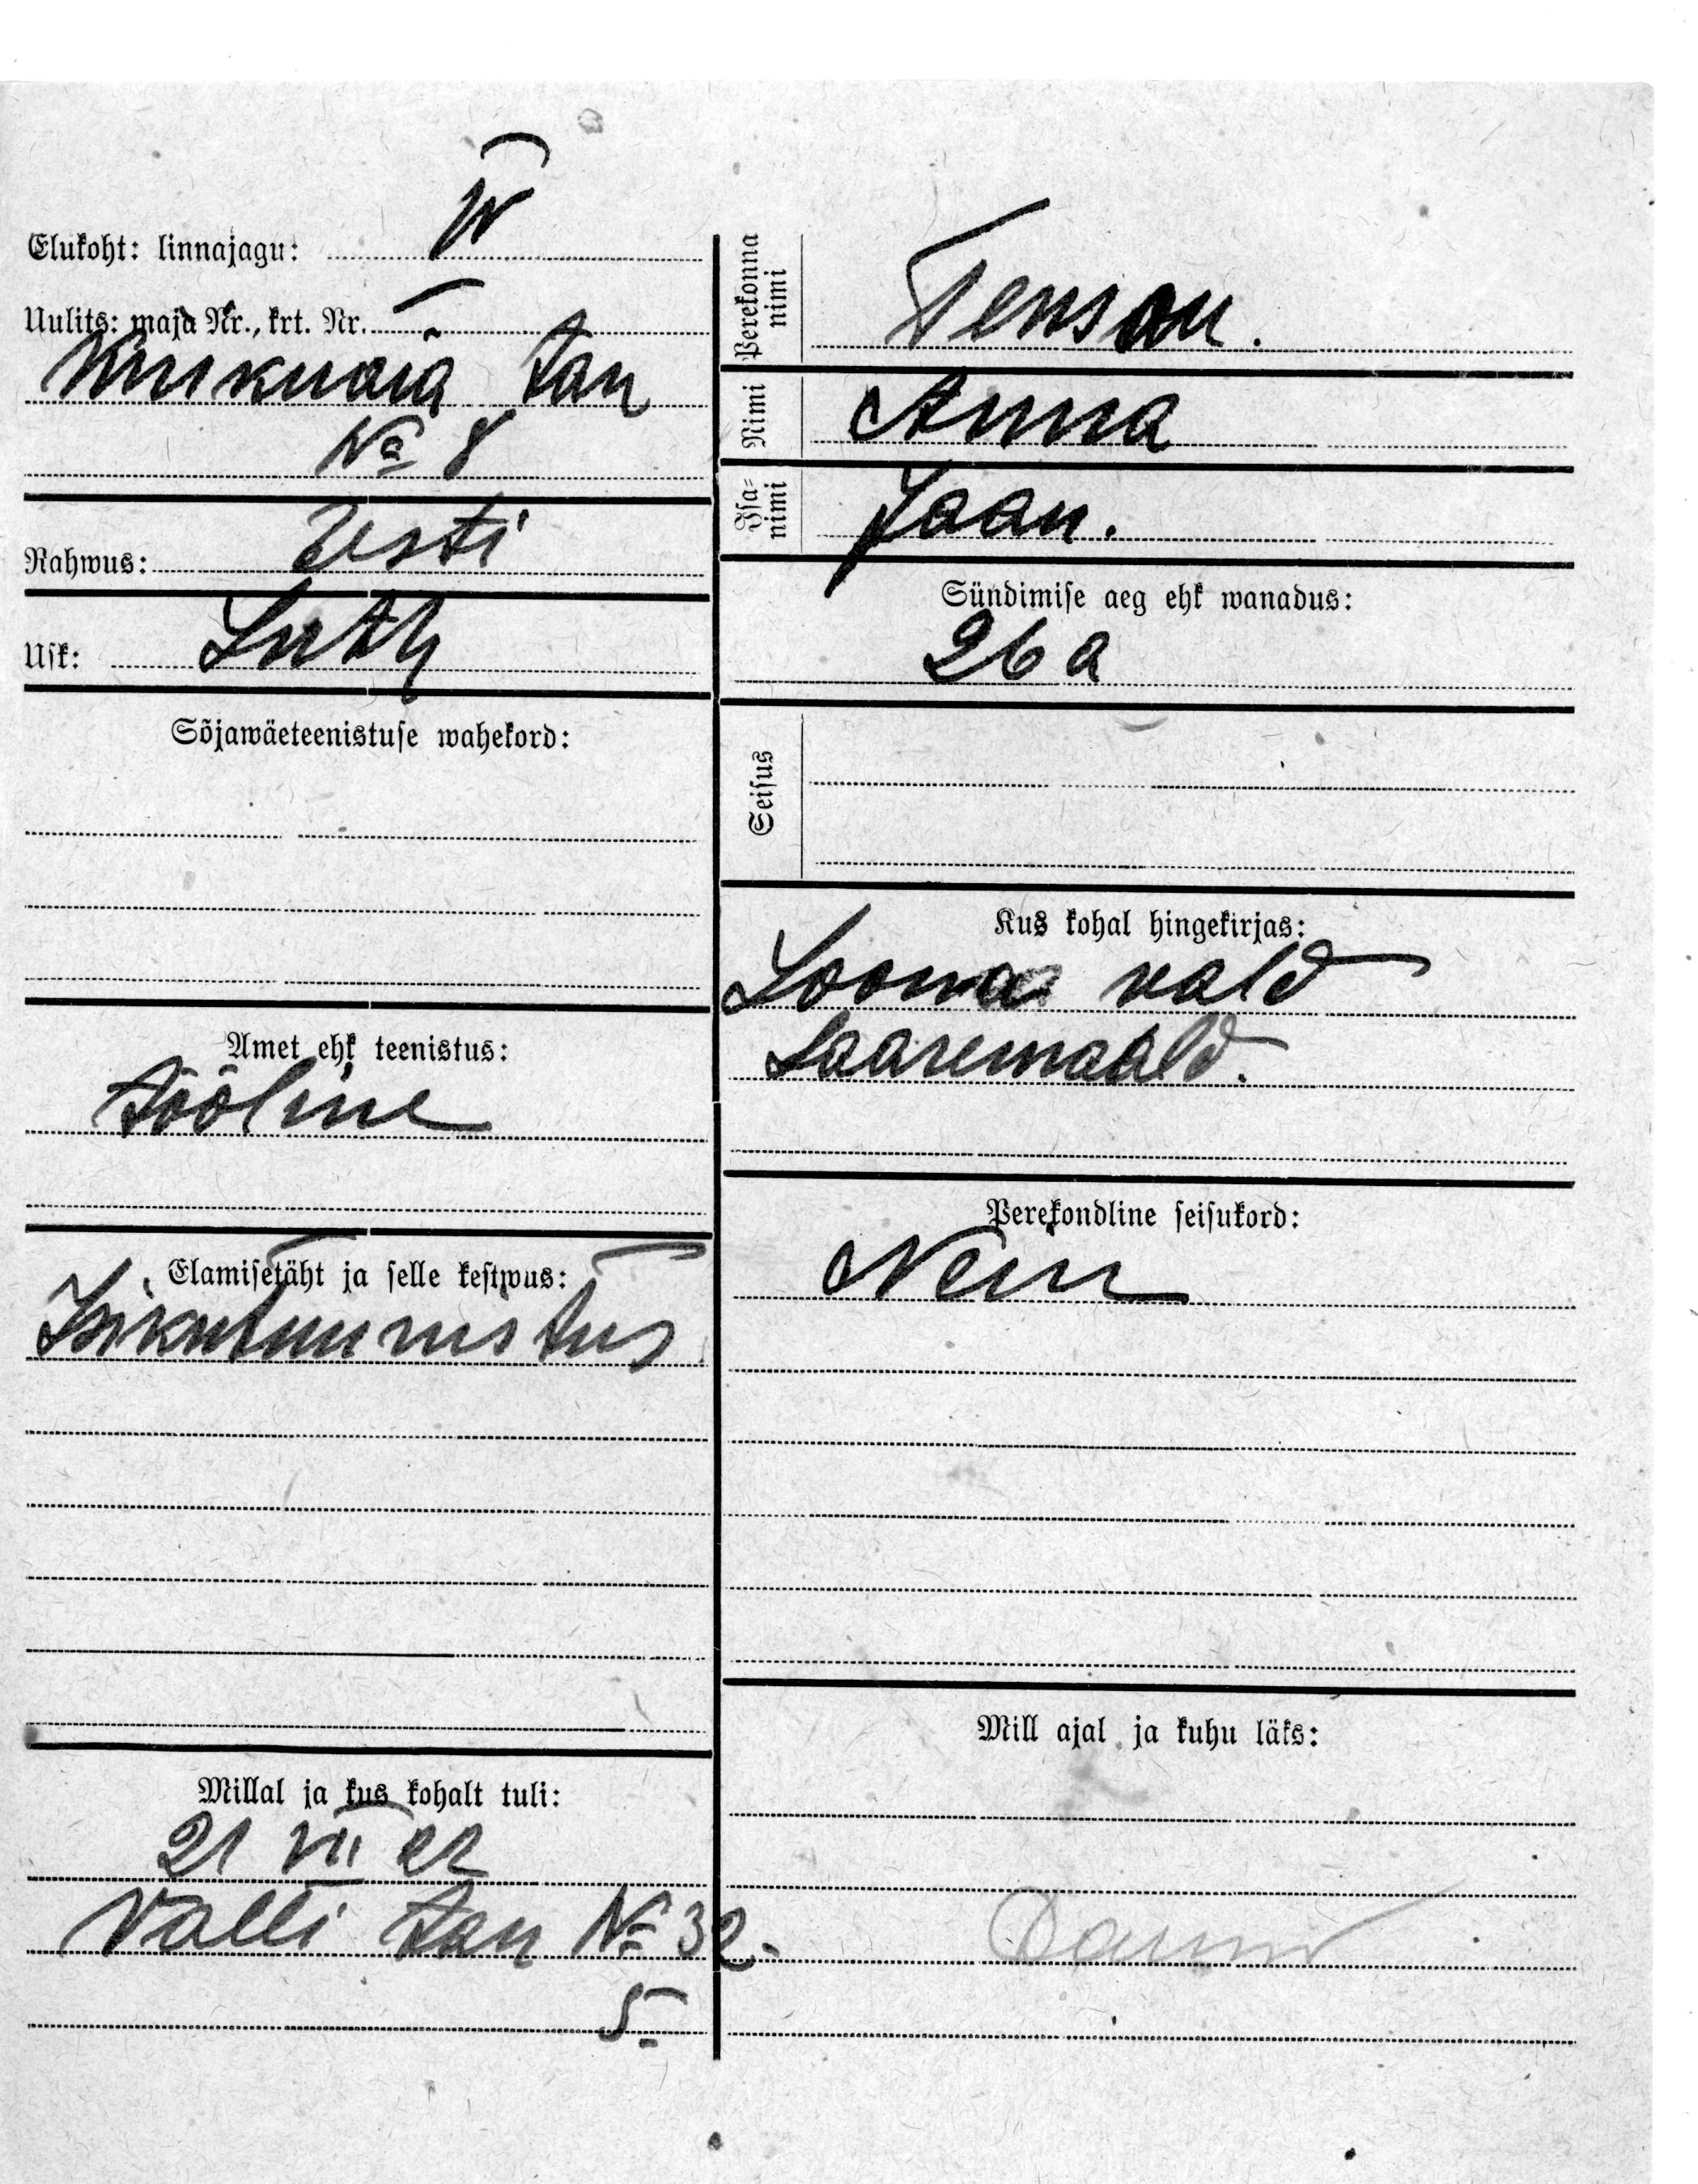 Elukoht: linnajagu: IV
Uulits: maja Nr., krt. Nr.
tän
№ 8
Rahwus: Eesti
Usk: Luth
Sõjawäeteenistuse wahekord:
Amet ehk teenistus:
tööline
Elamisetäht ja selle kestwus:
Isikutunnistus
Millal ja kus kohalt tuli:
21 VII 22
Valli tän № 32.
5.
Perekonna nimi Tenson.
Nimi Anna
Isa-nimi Jaan.
Sündimise aeg ehk wanadus:
26 a
Seisus
Kus kohal hingekirjas:
Loona vald
Saaremaald.
Perekondline seisukord:
Neiu
Mill ajal ja kuhu läks: